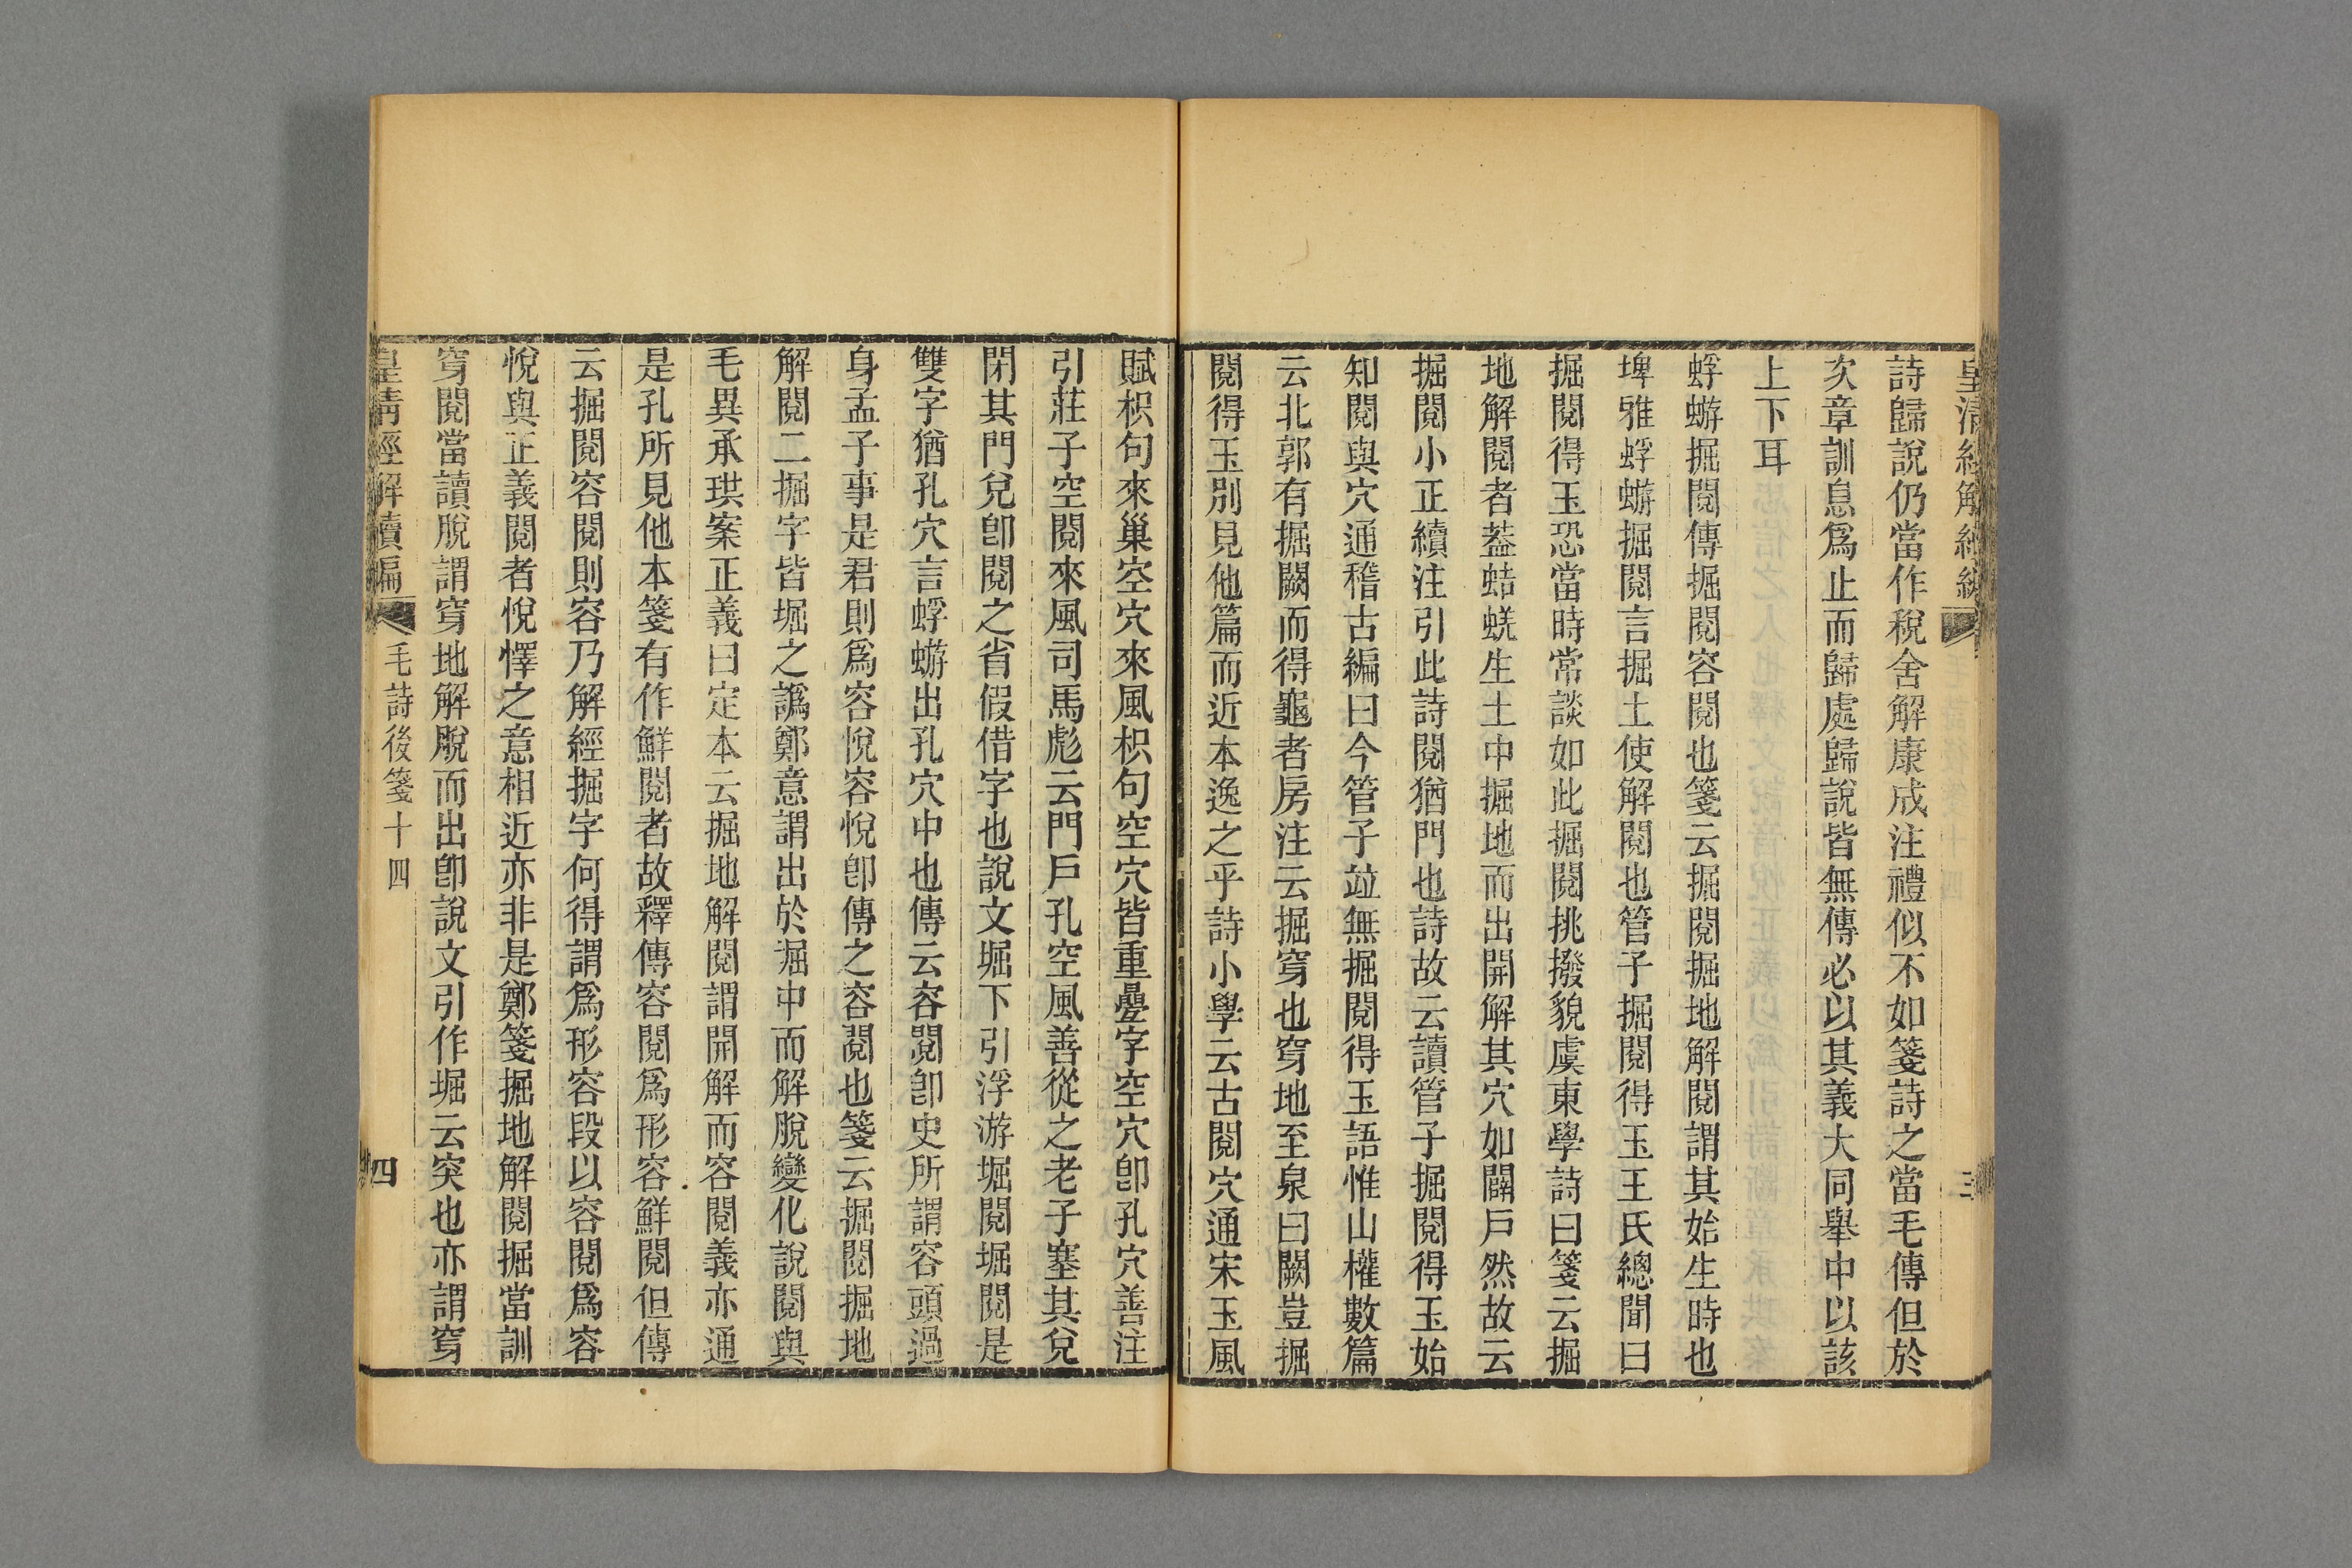 詩歸說仍當作稅舍解康成注禮似不如箋詩之當毛傳但於
次章訓息爲止而歸處歸說皆無傳必以其義大同舉中以該
上下耳
蜉蝣掘閱傳掘閱容閱也箋云掘閱掘地解閱謂其始生時也
埤雅蜉蝣掘閱言掘土使解閱也管子掘閱得玉王氏總聞曰
掘閱得玉恐當時常談如此掘閱挑撥貌虞東學詩曰箋云掘
地解閱者葢蛣蜣生土中掘地而出開解其穴如闢戶然故云
掘閱小正續注引此詩閱猶門也詩故云讀管子掘閱得玉始
知閱與穴通稽古編曰今管子竝無掘閱得玉語惟山權數篇
云北郭有掘闕而得龜者房注云掘穿也穿地至泉曰闕豈掘
閱得玉別見他篇而近本逸之乎詩小學云古閱穴通宋玉風
賦枳句來巢空穴來風枳句空穴皆重疊字空穴卽孔穴善注
引莊子空閱來風司馬彪云門戶孔空風善從之老子塞其兌
閉其門兌卽閱之省假借字也說文堀下引浮游堀閱堀閱是
雙字猶孔穴言蜉蝣出孔穴中也傳云容閱卽史所謂容頭過
身孟子事是君則爲容悅容悅卽傳之容閱也箋云掘閱掘地
解閱二掘字皆堀之譌鄭意謂出於堀中而解脫變化說閱與
毛異承珙案正義曰定本云掘地解閱謂開解而容閱義亦通
是孔所見他本箋有作鮮閱者故釋傳容閱爲形容鮮閱但傳
云掘閱容閱則容乃解經掘字何得謂爲形容段以容閱爲容
悅與正義閱者悅懌之意相近亦非是鄭箋掘地解閱掘當訓
穿閱當讀脫謂穿地解脫而出卽說文引作堀云突也亦謂穿
皇清經解續編
毛詩後箋十四
四